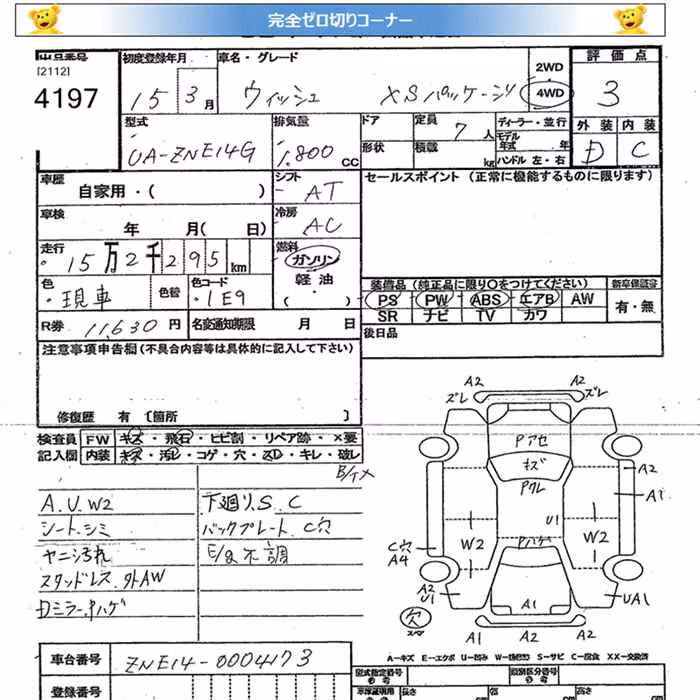 完全ゼロ切りコーナー
出品番号
[2112]
4197
初度登録年月
15 3月
車名・グレード
ウィッシュ XSパッケージ
2WD
4WD
評価点
3
型式
UA-ZNE14G
排気量
1.800 CC
ドア
形状
定員 7人
積載 kg
ディーラー・並行
モデル年式 年
ハンドル 左・右
外装 内装
D C
車歴
自家用・( )
シフト
AT
セールスポイント (正常に機能するものに限ります)
車検
年 月( 日)
冷房
AC
走行
15万2千295km
燃料
ガソリン
軽油
・( )
色
現車
色替
色コード
1E9
装備品 (純正品に限り○をつけてください)
新車保証書
PS PW ABS エアB AW
SR ナビ TV カワ
有・無
R券 11,630円
名変通知期限 月 日
後日品
注意事項申告欄 (不具合内容等は具体的に記入して下さい)
修復歴 有 〔箇所 〕
検査員
記入欄
FW キズ・飛石・ヒビ割・リペア跡・×要
内装 キズ・汚レ・コゲ・穴・スレ・キレ・破レ
A.U.W2
シート.シミ
ヤニシ汚れ
スタッドレス.外AW
Dミラーキハゲ
下廻り.S.C
バックプレート.C穴
E/g不調
A2 A2
ズレ ズレ
Pアセ
キズ
Pクレ
A2
A1
U1
C穴
A4
W2 W2
Pハゲ
A2
U1
A1
UA1
欠
スペア
A1 A2 A2
A―キズ E―エクボ U―凹み W―(補修跡) S―サビ C―腐食 XX―交換済
車台番号
ZNE14-0004173
登録番号
型式指定番号
類別区分番号
長さ
幅
高さ